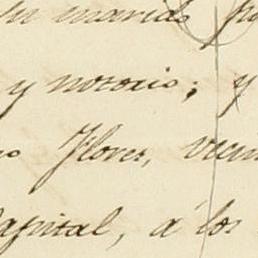 su marido
y notorio; y
Flores, vecin
Capital, á los